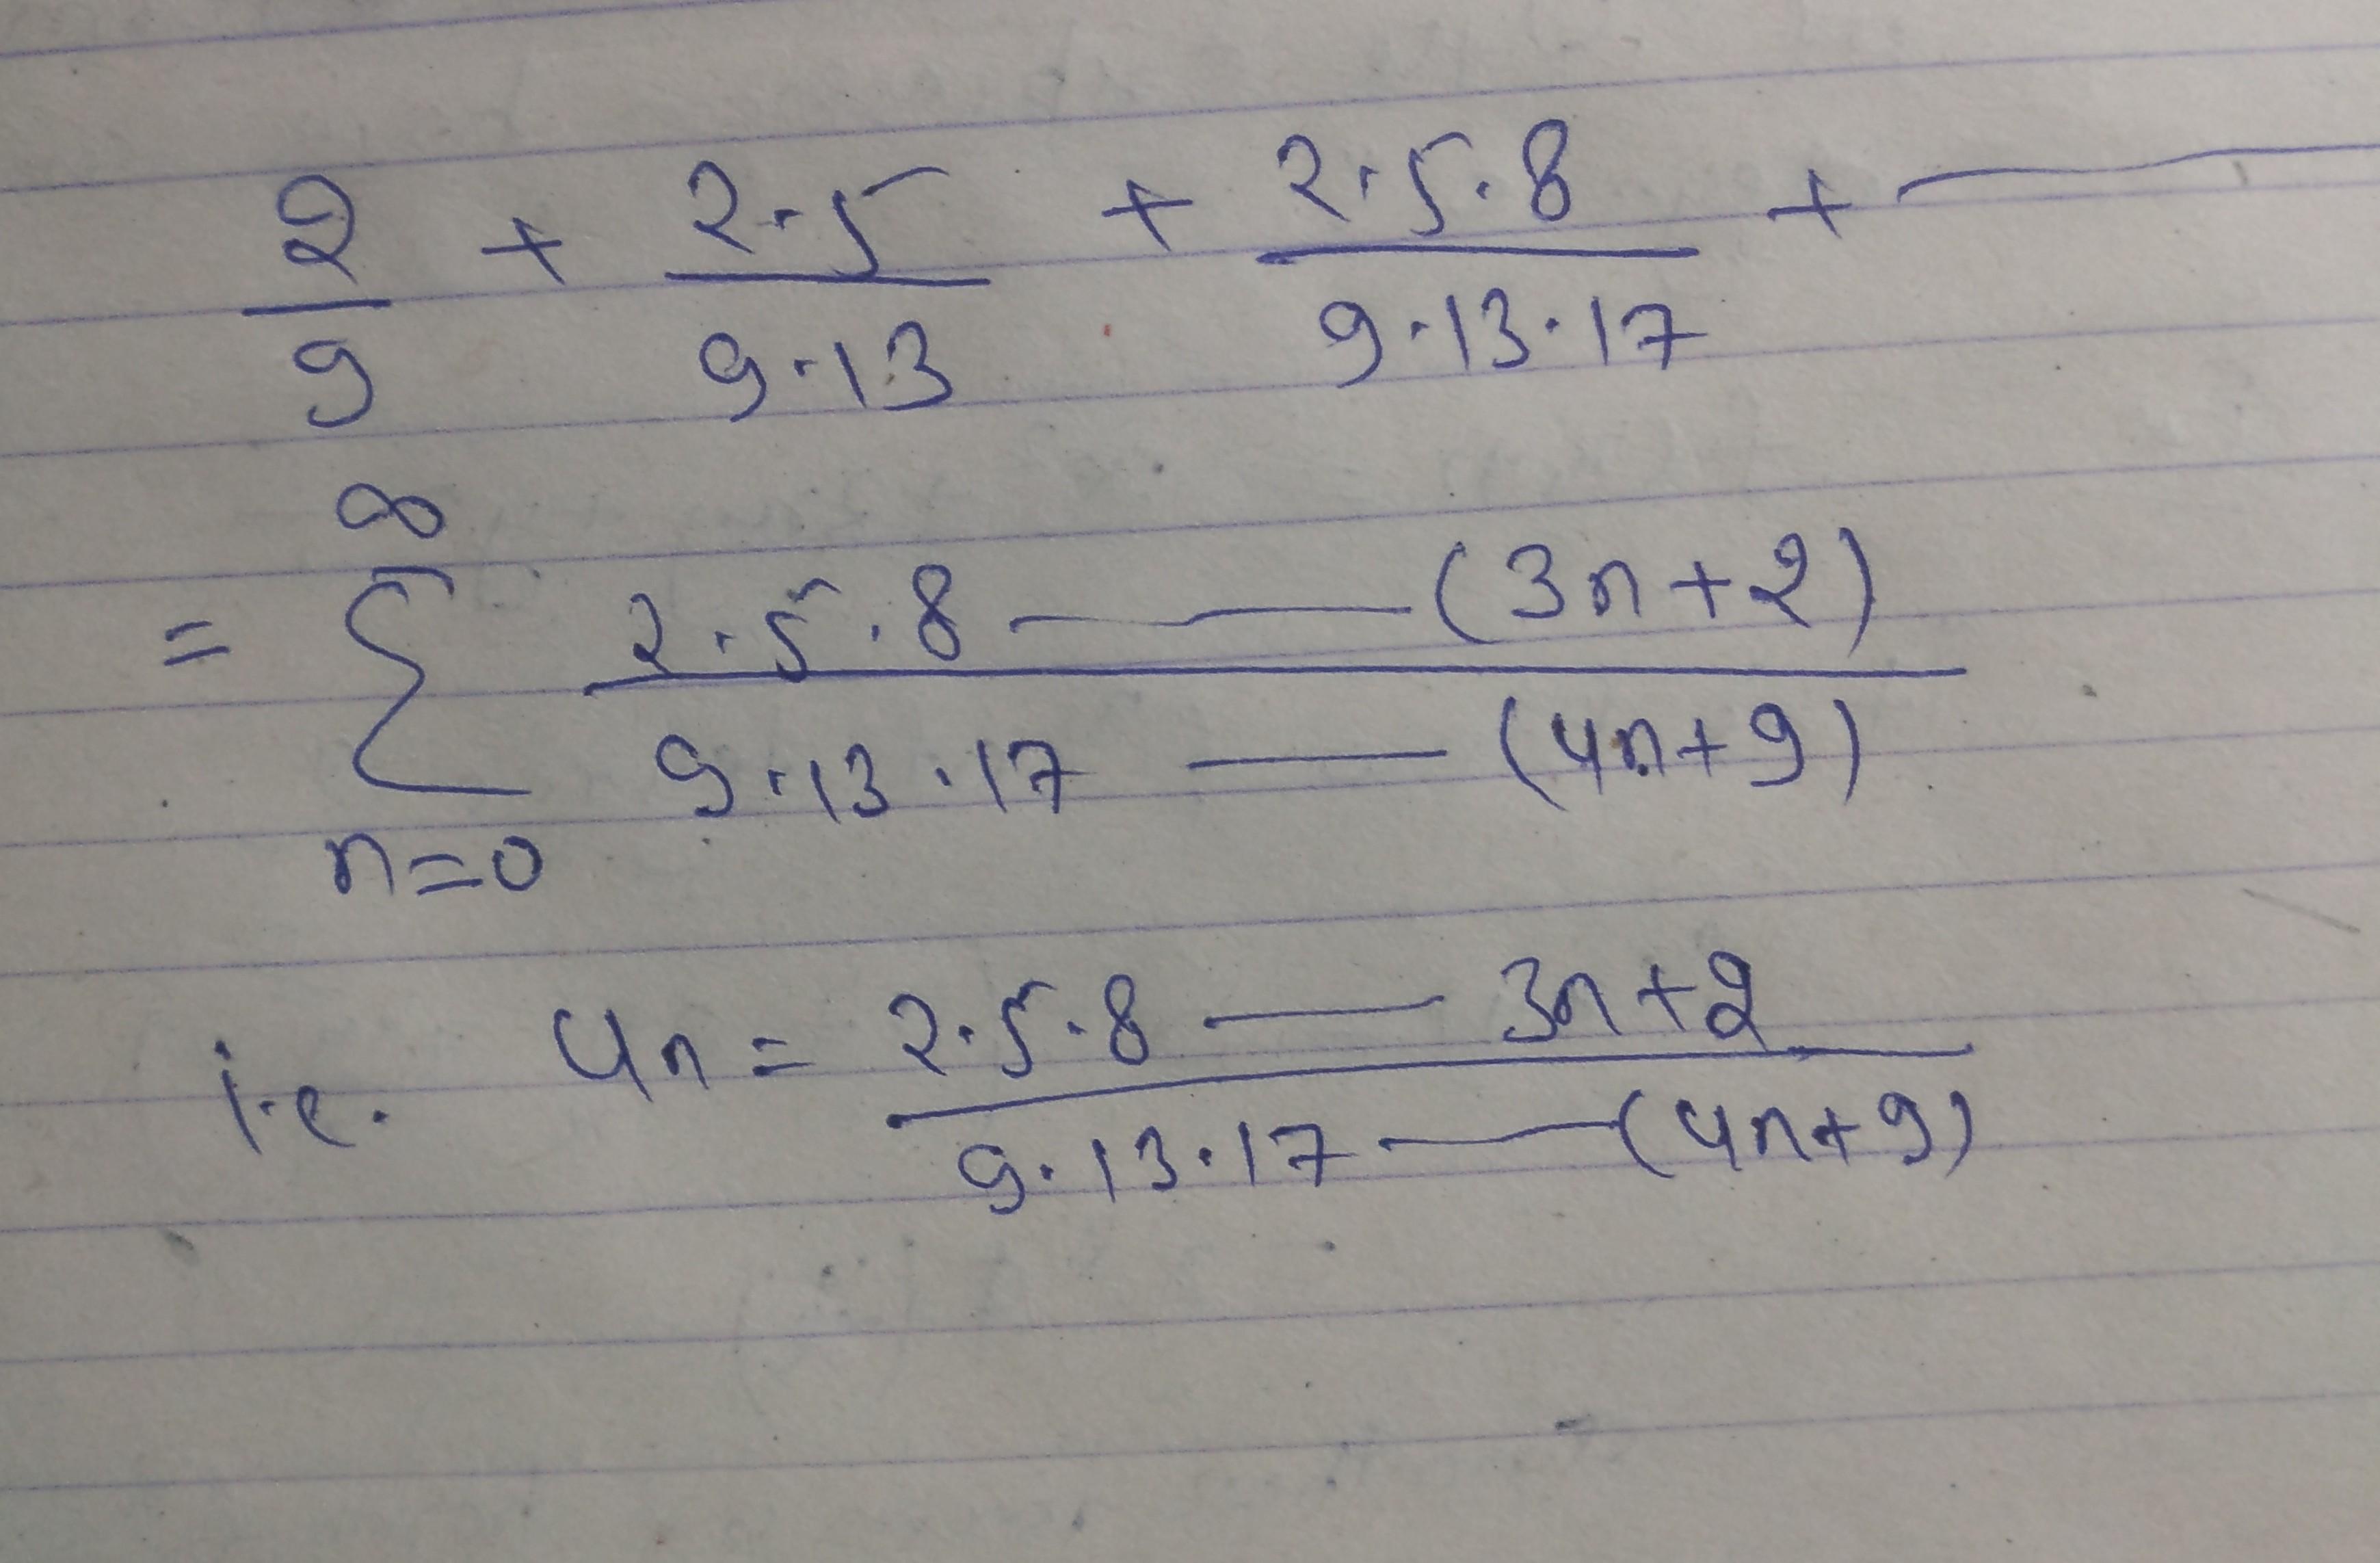 2/9 + 2·5/9·13 + 2·5·8/9·13·17 + ———
= ∞ Σ n=0 2·5·8 ——— (3n+2)/9·13·17 ——— (4n+9)
i.e. Un = 2·5·8 —— 3n+2/9·13·17 ——— (4n+9)